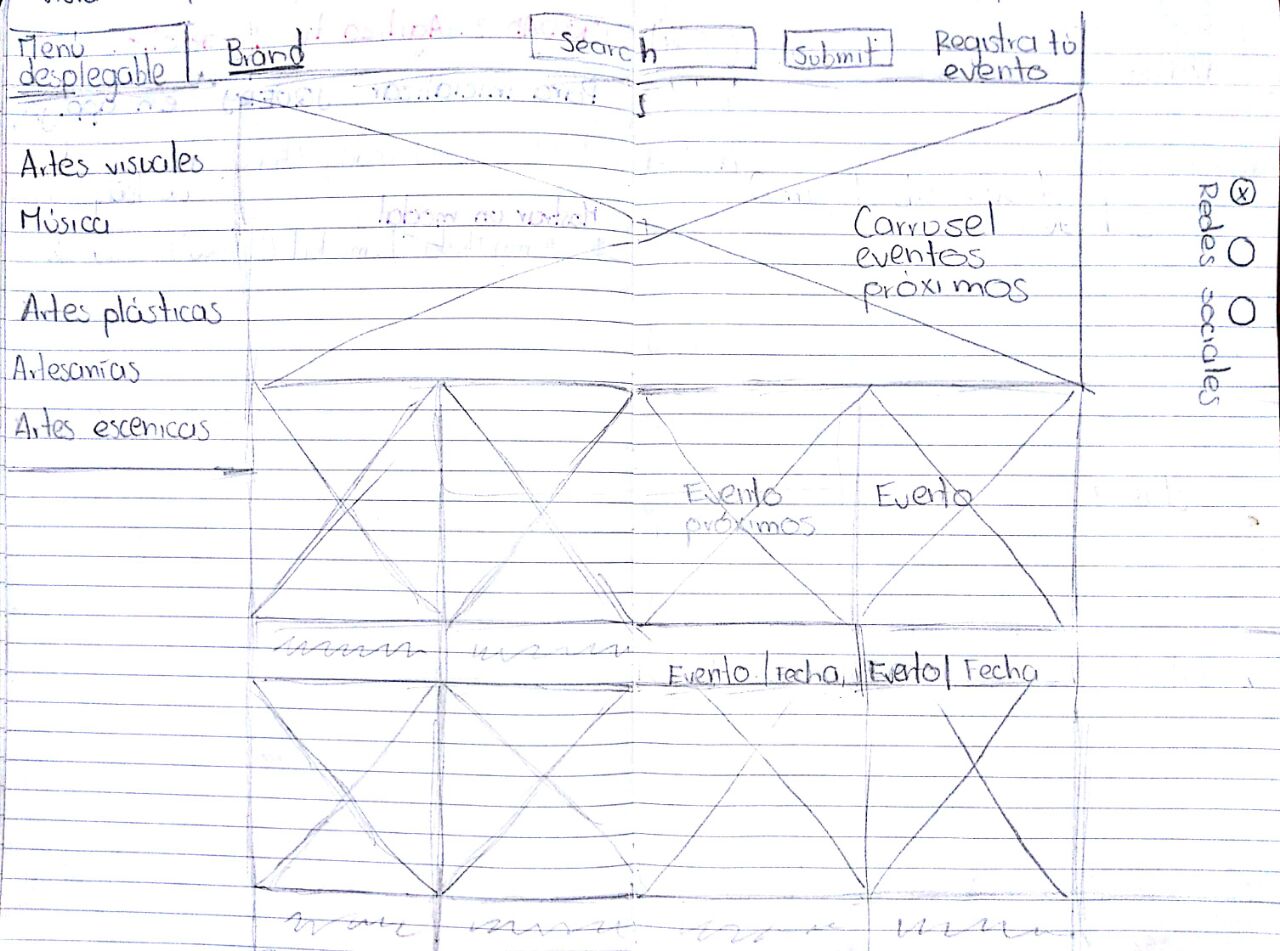 Menú
desplegable
Brand
Search
Submit
Registra tú
evento
Artes visuales
Música
Artes plásticas
Artesanías
Artes escenicas
Carrusel
eventos
próximos
Redes sociales
Evento
próximos
Evento
Evento / Fecha
Evento / Fecha